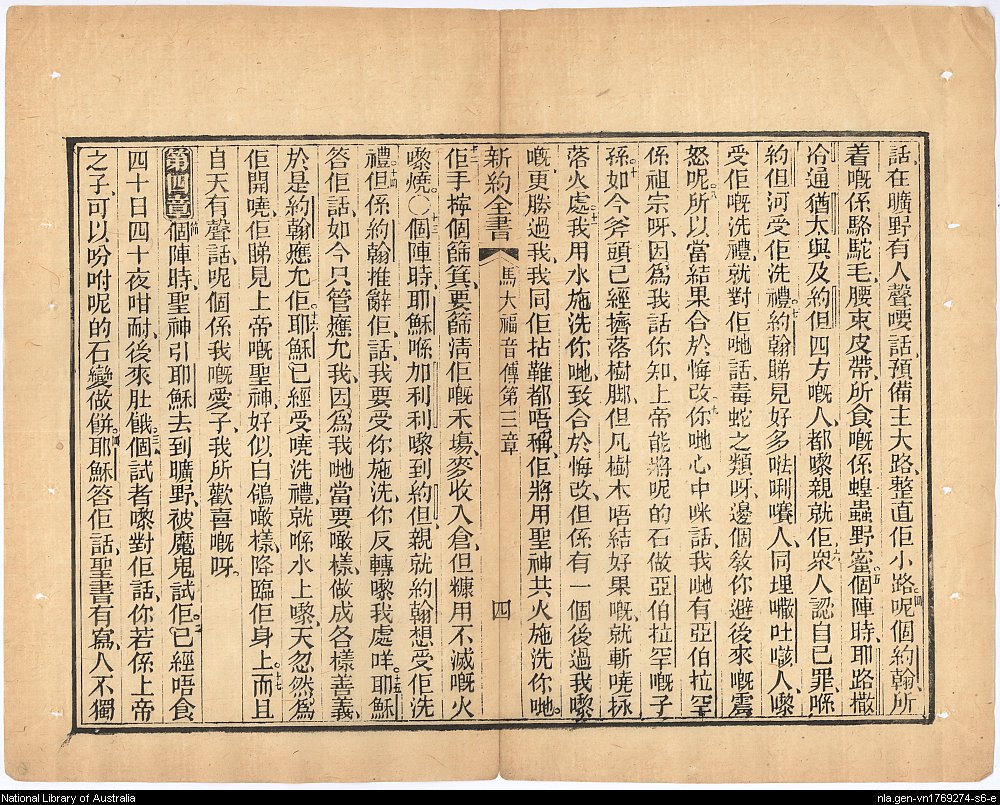 話、在曠野有人聲嘤話、預備主大路、整直佢小路、呢個約翰、所
着嘅係駱駝毛、腰束皮帶、所食嘅係蝗蟲野蜜、個陣時、耶路撒
冷通猶太與及約但四方嘅人、都嚟親就佢、衆人認自己罪、喺
約但河受佢洗禮、約翰睇見好多𠵽唎嚽人、同埋㘔吐㗋人、嚟
受佢嘅洗禮、就對佢哋話、毒蛇之類呀、邊個敎你避後來嘅震
怒呢、所以當結果合於悔改、你哋心中咪話、我哋有亞伯拉罕
係祖宗呀、因爲我話你知、上帝能將呢的石做亞伯拉罕嘅子
孫、如今斧頭已經擠落樹脚、但凡樹木唔結好果嘅、就斬嘵掁
落火處、我用水施洗你哋、致合於悔改、但係有一個後過我嚟
嘅、更勝過我、我同佢拈鞋都唔稱、佢將用聖神共火施洗你哋。
新約全書 馬太福音傳第三章 四
佢手揸個篩箕、要篩淸佢嘅禾塲、麥收入倉、但糠用不滅嘅火
嚟燒。〇個陣時、耶穌喺加利利嚟到約但、親就約翰、想受佢洗
禮、但係約翰推辭佢、話、我要受你施洗、你反轉嚟我處咩、耶穌
答佢話、如今只管應允我、因爲我哋當要噉樣、做成各樣善義、
於是約翰應允佢、耶穌已經受嘵洗禮、就喺水上嚟、天忽然爲
佢開嘵、佢睇見上帝嘅聖神、好似白鴿噉樣、降臨佢身上、而且
自天有聲話、呢個係我嘅愛子、我所歡喜嘅呀。
第四章 個陣時、聖神引耶穌去到曠野、被魔鬼試佢、已經唔食
四十日四十夜咁耐、後來肚餓、個試者嚟對佢話、你若係上帝
之子、可以吩咐呢的石變做餅、耶穌答佢話、聖書有寫、人不獨
National Library of Australia
nla.gen-vn1769274-s6-e